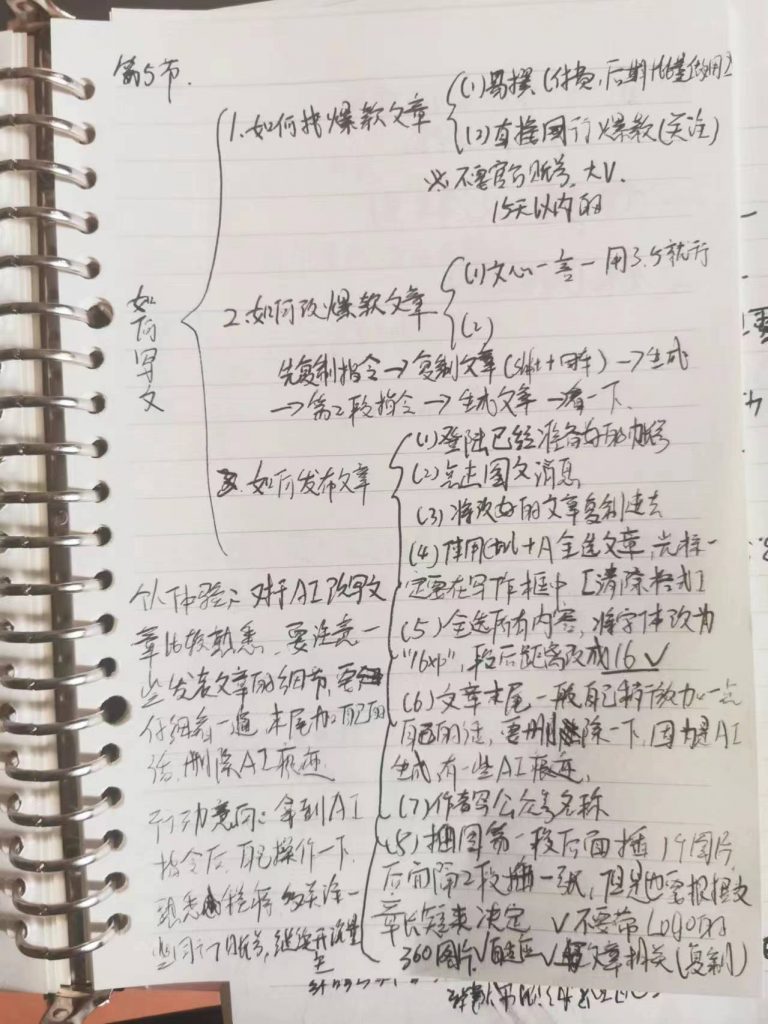 第5节.
如何写文
1.如何找爆款文章
(1)易撰(付费,后期批量做用)
(2)直接同行爆款(关注)
※不要官方账号,大V.
15天以内的
2.如何改爆款文章
(1)文心一言一用3.5就行
(2)
先复制指令→复制文章(shift+回车)→生成
→第2段指令→生成文章→看一下.
3.如何发布文章
(1)登陆已经准备好的
(2)点击图文消息
(3)将改好的文章复制进去
(4)使用Ctrl+A全选文章,先择一
定要在写作框中[清除格式]
(5)全选所有内容,将字体改为
"16xp",段后距离改成16√
(6)文章末尾一般自己稍微加一点
自己的话,要删除一下,因为是AI
生成,有一些AI痕迹,
(7)作者写公众号名称
(8)插图第一段后面插1个图片,
后面隔2段插一张,但是也要根据文
章长短来决定 √不要带Logo的
360图片√ √跟文章相关(复制)
个人体验:对于AI改写文
章比较熟悉,要注意一
些发表文章的细节,要
仔细看一遍,末尾加自己的
话,删除AI痕迹
行动意向:拿到AI
指令后,自己操作一下.
熟悉流程 多关注一
些同行账号,继续开流量
主